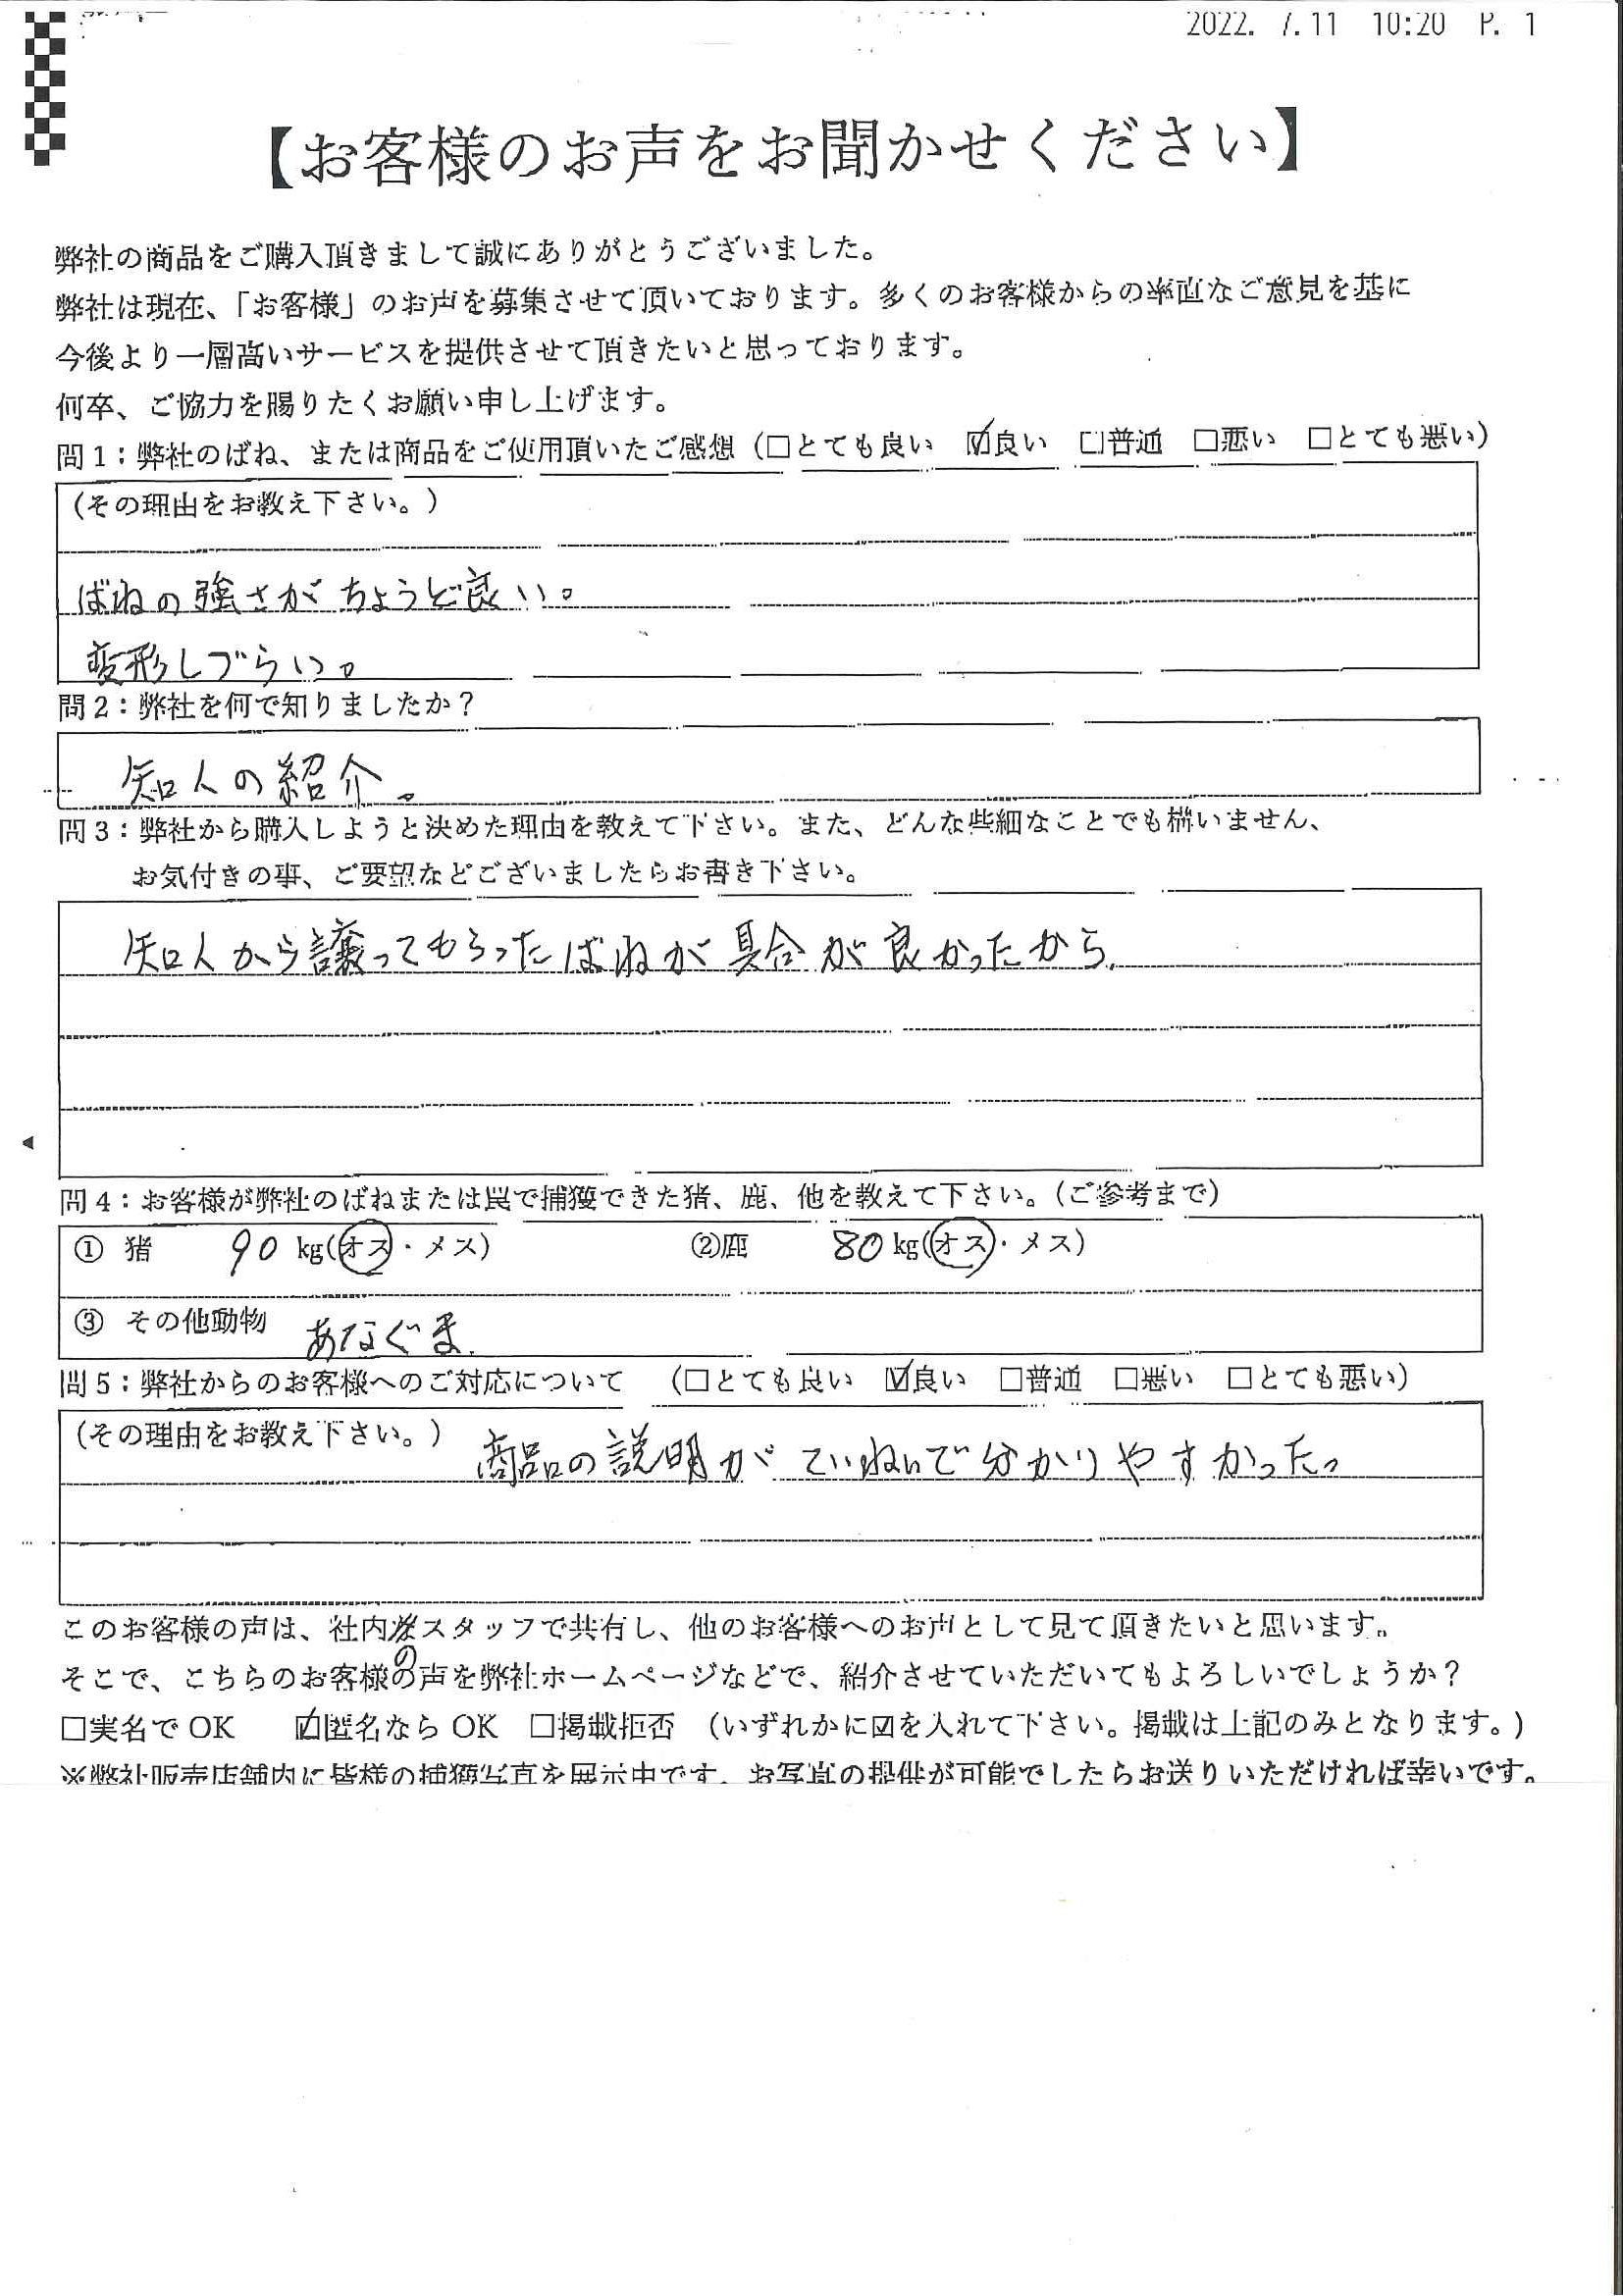 2022. 7.11 10:20 P. 1
【お客様のお声をお聞かせください】
弊社の商品をご購入頂きまして誠にありがとうございました。
弊社は現在、「お客様」のお声を募集させて頂いております。多くのお客様からの率直なご意見を基に
今後より一層高いサービスを提供させて頂きたいと思っております。
何卒、ご協力を賜りたくお願い申し上げます。
問1：弊社のばね、または商品をご使用頂いたご感想（□とても良い ☑良い □普通 □悪い □とても悪い）
（その理由をお教え下さい。）
ばねの強さがちょうど良い。
変形しづらい。
問2：弊社を何で知りましたか？
知人の紹介。
問3：弊社から購入しようと決めた理由を教えて下さい。また、どんな些細なことでも構いません、
お気付きの事、ご要望などございましたらお書き下さい。
知人から譲ってもらったばねが具合が良かったから
問4：お客様が弊社のばねまたは罠で捕獲できた猪、鹿、他を教えて下さい。（ご参考まで）
① 猪 90 kg(オス・メス) ②鹿 80 kg(オス・メス)
③ その他動物 あなぐま
問5：弊社からのお客様へのご対応について （□とても良い ☑良い □普通 □悪い □とても悪い）
（その理由をお教え下さい。） 商品の説明がていねいで分かりやすかった。
このお客様の声は、社内スタッフで共有し、他のお客様へのお声として見て頂きたいと思います。
そこで、こちらのお客様の声を弊社ホームページなどで、紹介させていただいてもよろしいでしょうか？
□実名で OK ☑匿名なら OK □掲載拒否 （いずれかに☑を入れて下さい。掲載は上記のみとなります。)
※弊社販売店舗内に皆様の捕獲写真を展示中です。お写真の提供が可能でしたらお送りいただければ幸いです。